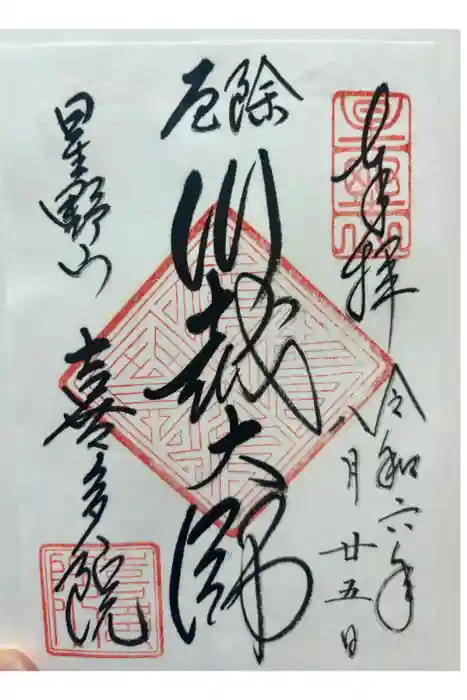 奉拝
令和六年
八月廿五日
厄除
川越大師
星野山
喜多院